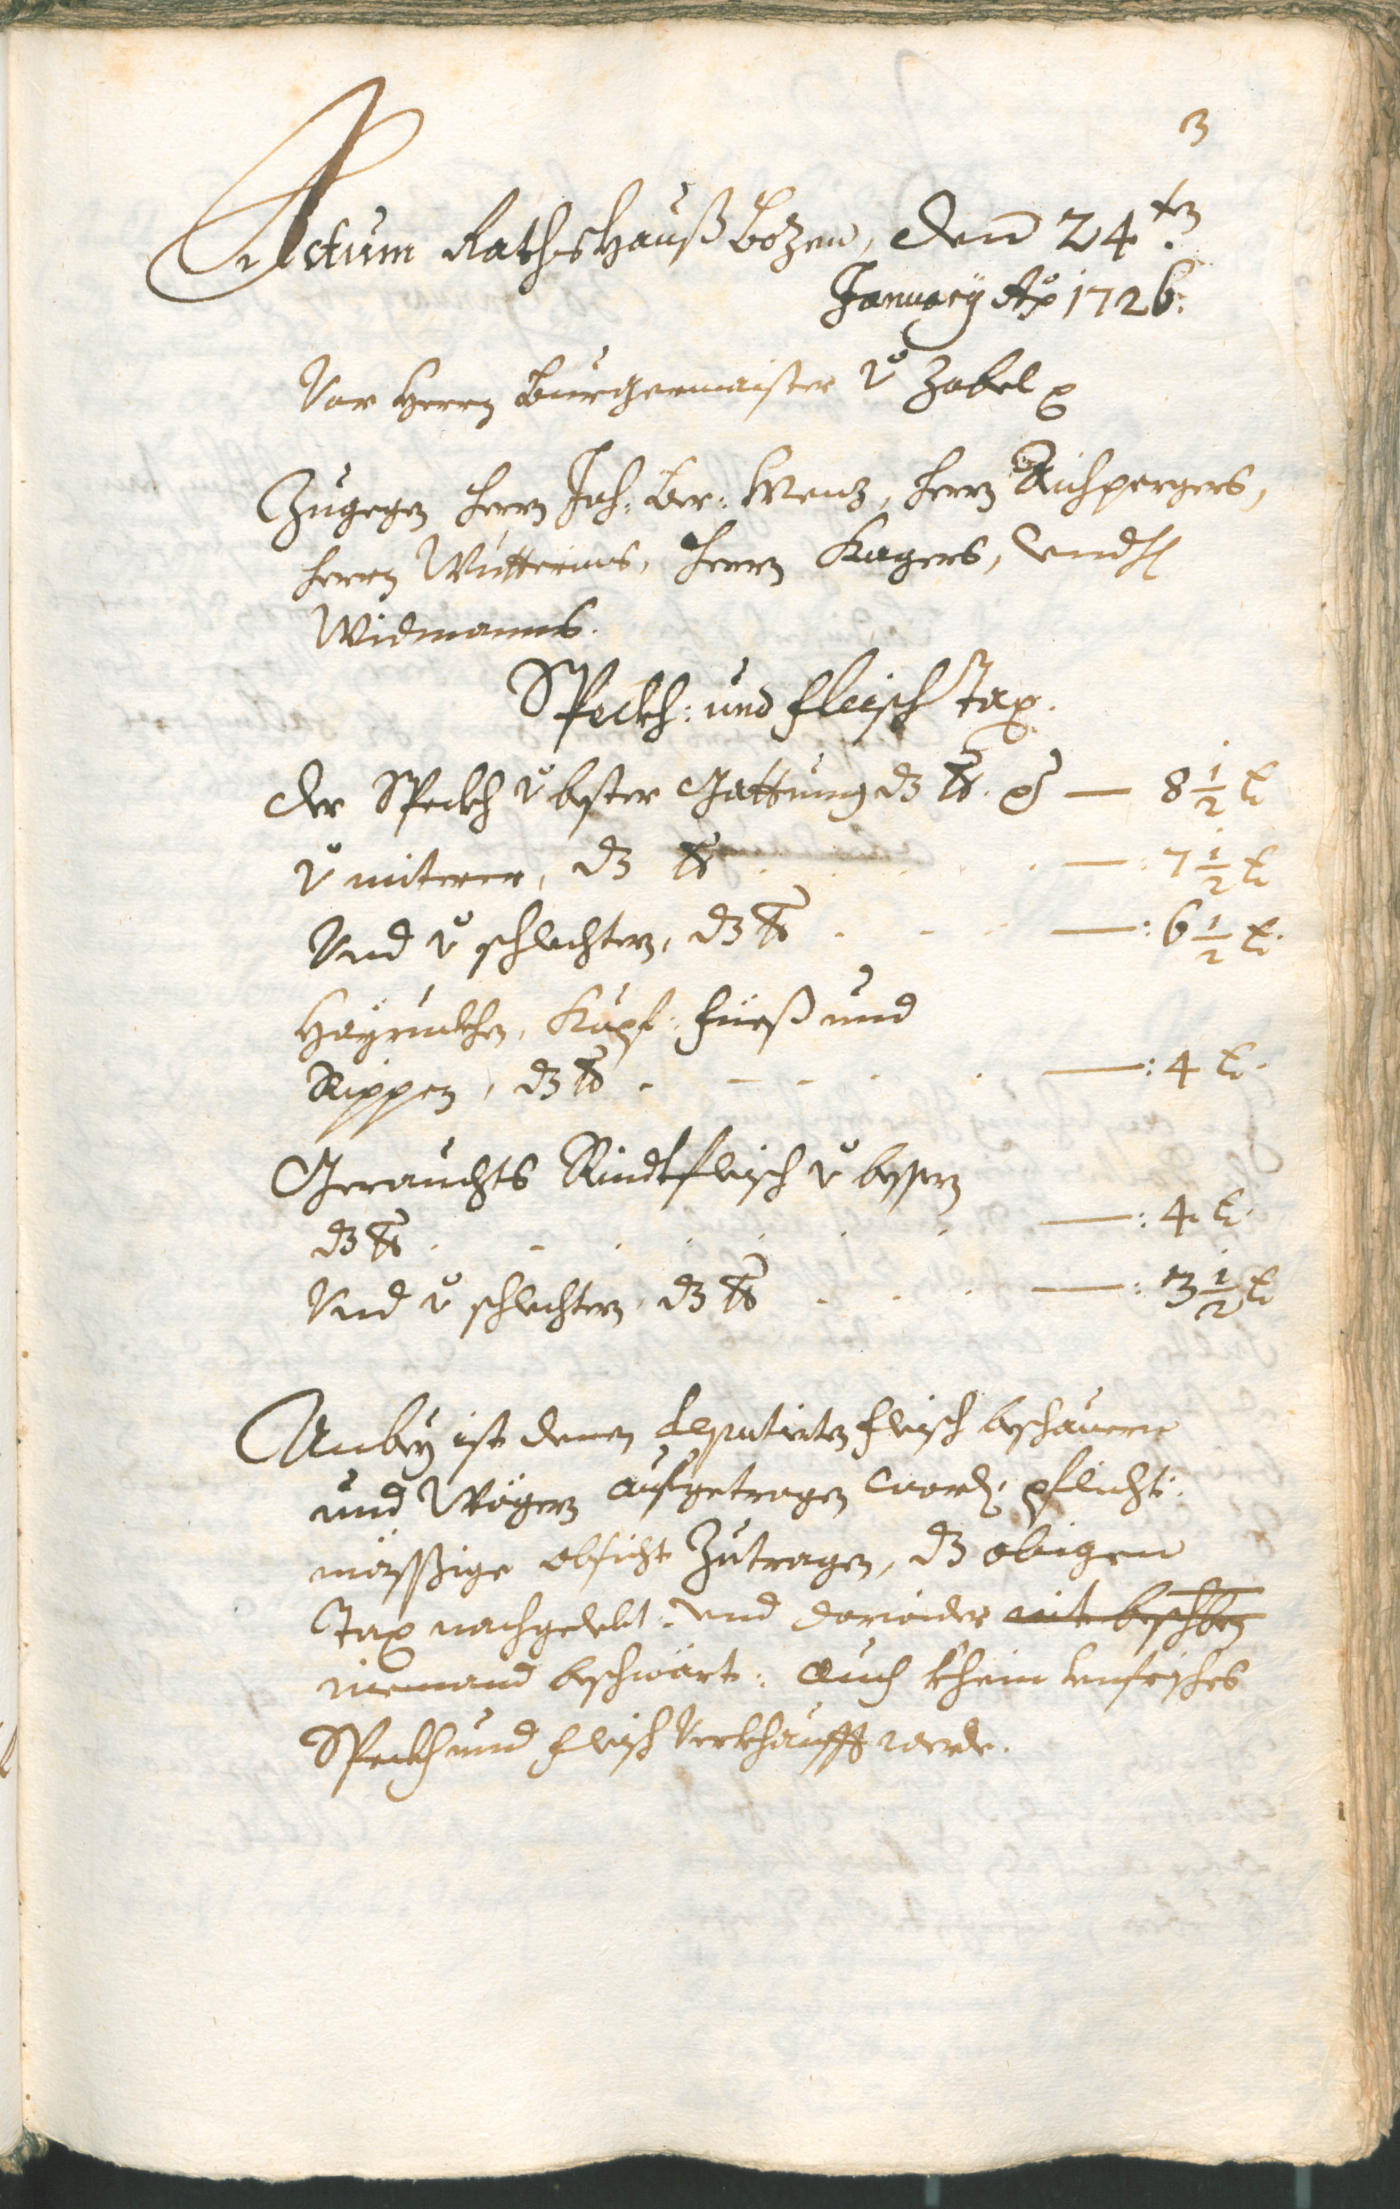 3
Actum Rathshauß Bozen, den 24ten
January Ao 1726.
Vor Herrn Burgermaister v Zobel
Zugegen Herrn Joh: Bar: Menz, Herrn Aichpergers,
Herrn Wütterins, Herrn Kagers, und H
Widmanns.
Speckh: und Fleisch Tax.
Der Speckh v bester Gattung dz ℔. p — 8 1/2 x
v miterer, dz ℔ . . . —: 7 1/2 x
Und v schlechtern, dz ℔ . . . —: 6 1/2 x.
Hayruckhen, Köpf: Füeß und
Rippen, dz ℔ . . . —: 4 x.
Gerauchts Rindtfleisch v bessern
dz ℔ . . . —: 4 x.
Und v schlechtern, dz ℔ . . . —: 3 1/2 x
Anbey ist denen deputierten Fleisch beschauern
und Wögern aufgetragen word, pflicht:
mässige obsicht zutragen, dz obigen
Tax nachgelebt: und darwider nit
niemand beschwärt: auch khein
Speckh und Fleisch verkhaufft werde.